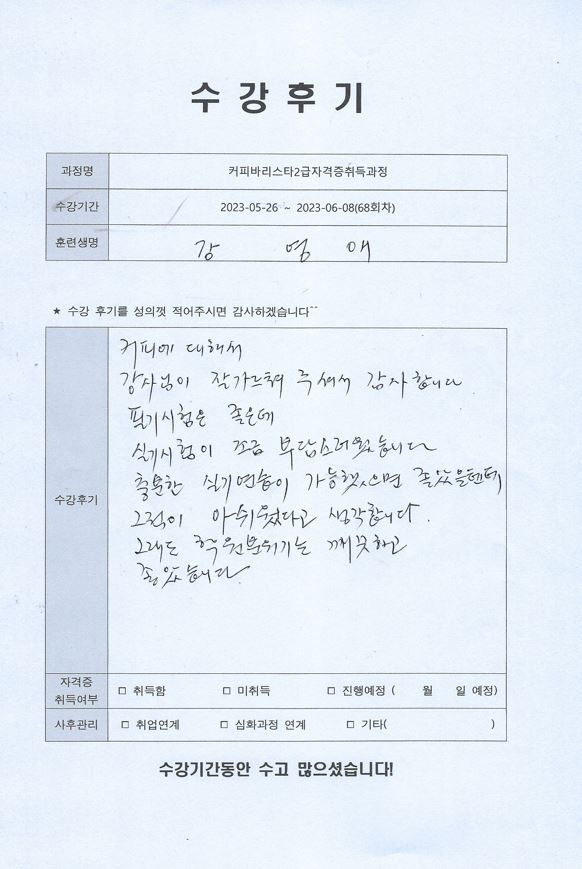 수강후기
과정명 커피바리스타2급자격증취득과정
수강기간 2023-05-26 ~ 2023-06-08(68회차)
훈련생명 강 영 애
★ 수강 후기를 성의껏 적어주시면 감사하겠습니다^^
수강후기
커피에 대해서
강사님이 잘가르쳐 주셔서 감사합니다
필기시험은 좋은데
실기시험이 조금 부담스러웠습니다
충분한 실기연습이 가능했으면 좋았을텐데
그점이 아쉬웠다고 생각합니다.
그래도 학원분위기는 깨끗하고
좋았습니다
자격증
취득여부 □ 취득함 □ 미취득 □ 진행예정 ( 월 일 예정)
사후관리 □ 취업연계 □ 심화과정 연계 □ 기타( )
수강기간동안 수고 많으셨습니다!